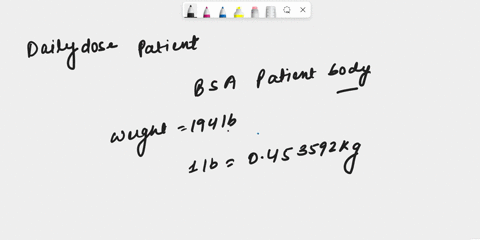 Daily dose Patient
BSA Patient body
weight = 194 lb
1 lb = 0.453592 kg